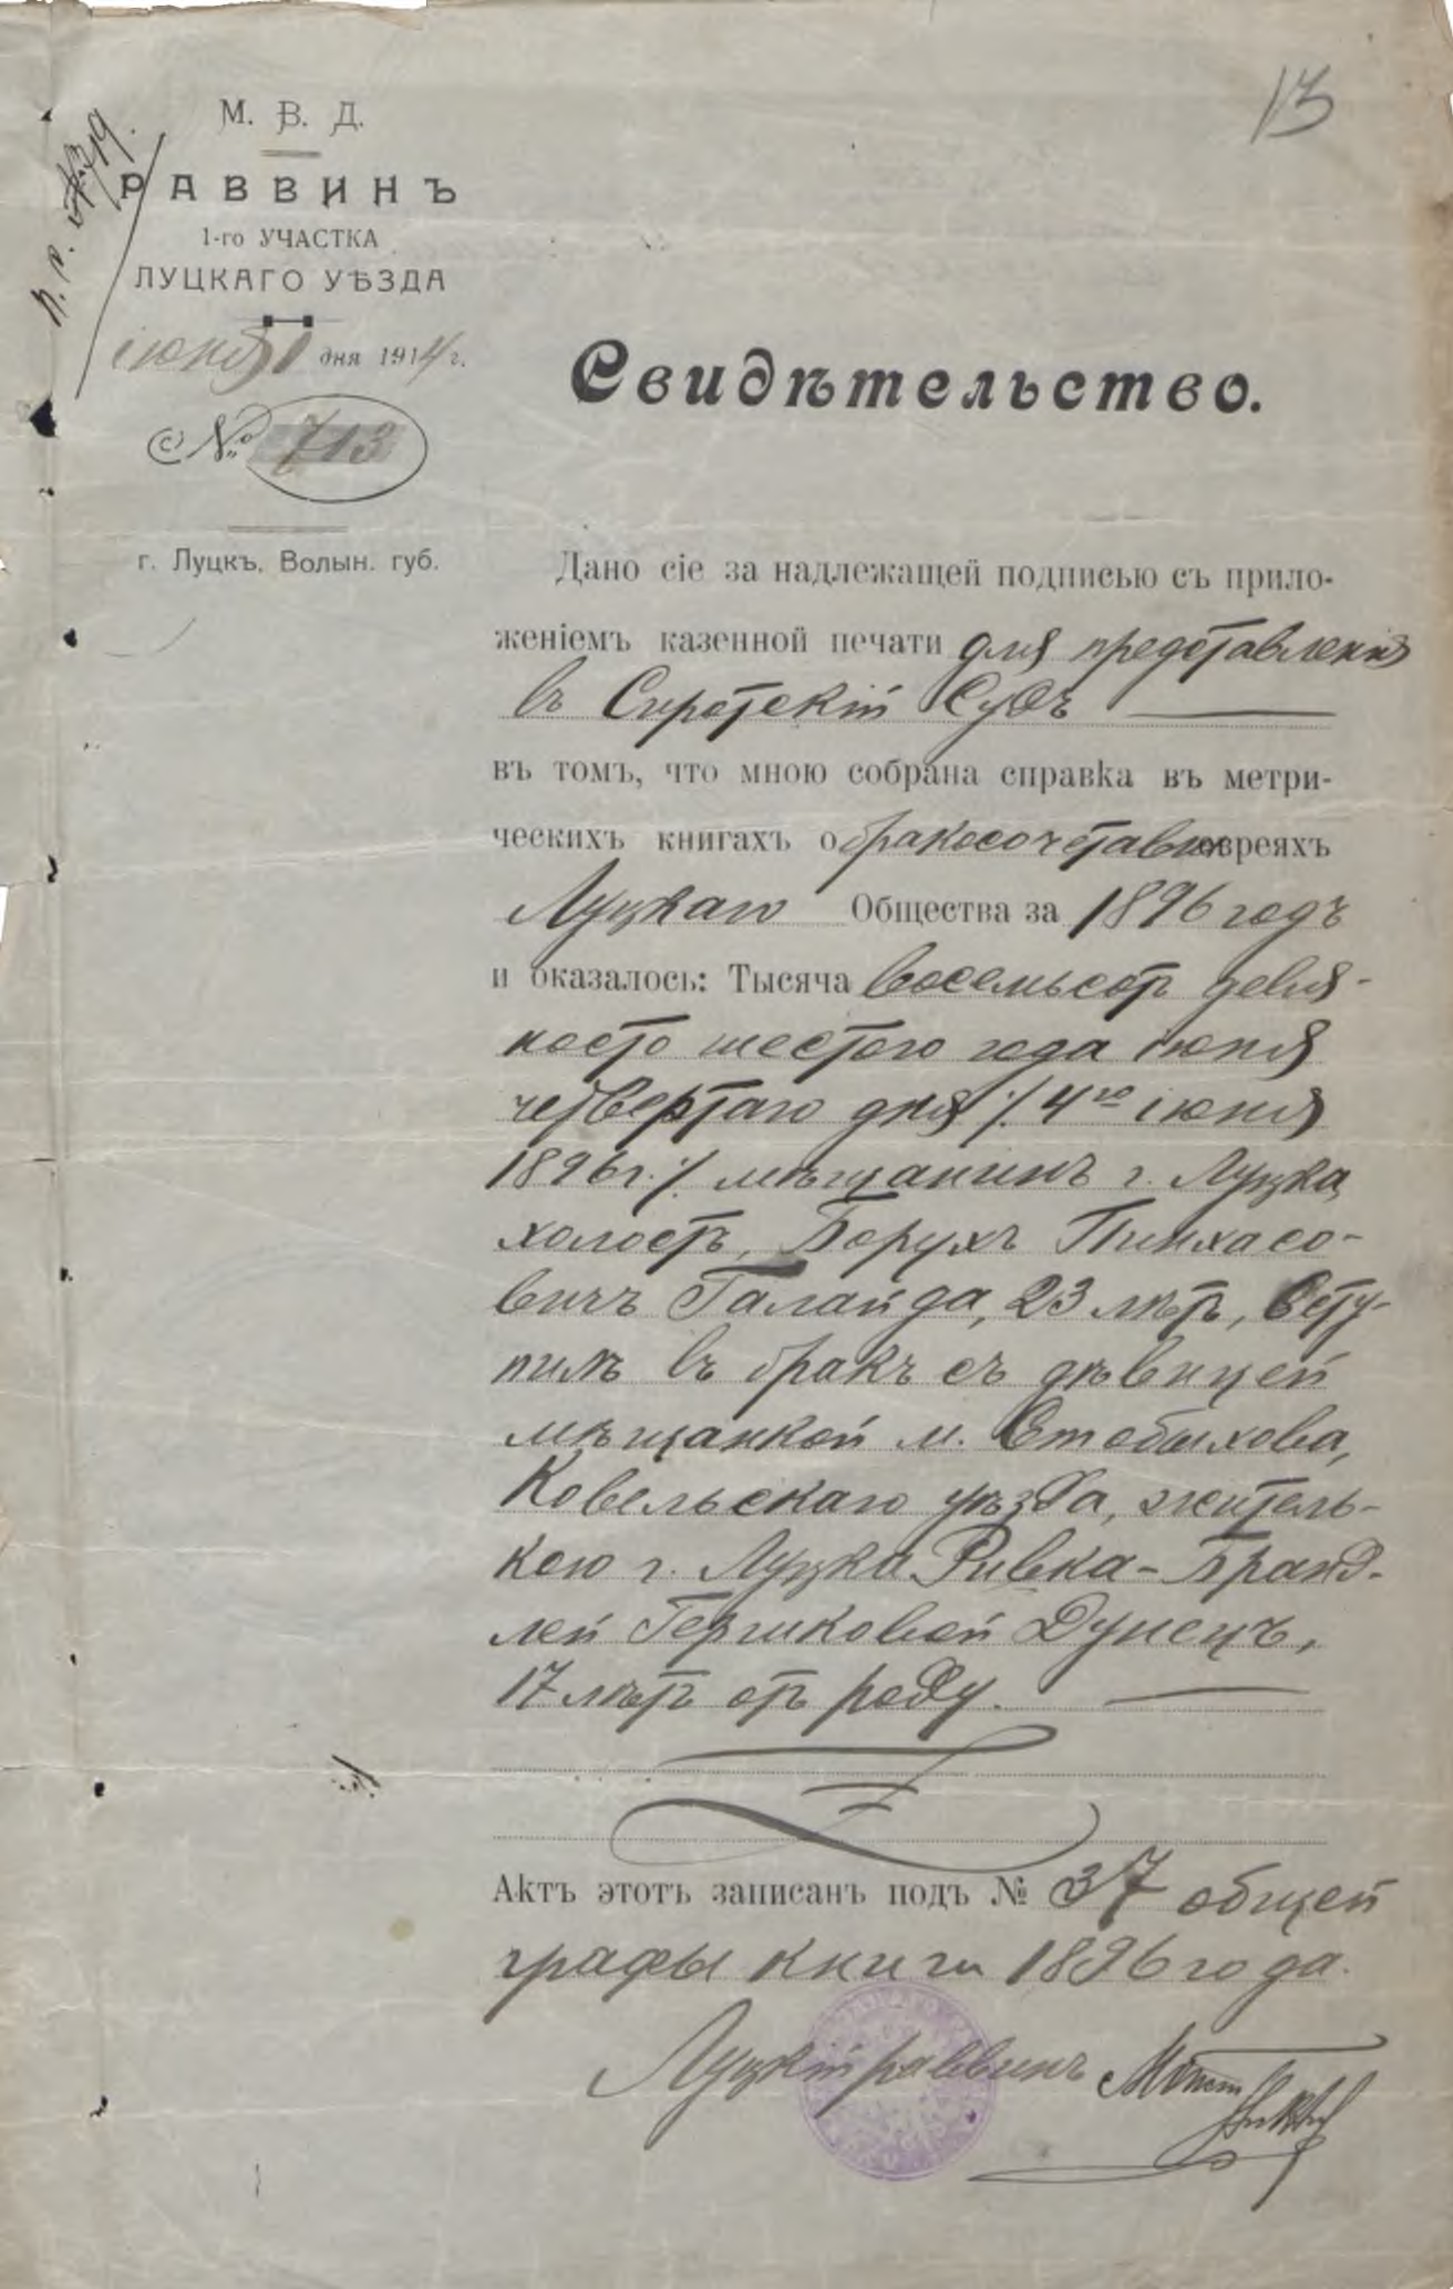 13
М. В. Д.
РАВВИНЪ
1-го УЧАСТКА
ЛУЦКАГО УѢЗДА
іюня 1 дня 1914 г.
№ 713
г. Луцкъ, Волын. губ.
Свидѣтельство.
Дано сіе за надлежащей подписью съ прило-
женіемъ казенной печати для представленія
въ Сиротскій Судъ
въ томъ, что мною собрана справка въ метри-
ческихъ книгахъ о бракосочетавш евреяхъ
Луцкаго Общества за 1896 годъ
и оказалось: Тысяча восемьсотъ девя-
носто шестого года іюня
четвертаго дня /. 4го іюня
1896 г. ./. мѣщанинъ г. Луцка,
холостъ, Борухъ Пинхасо-
вичъ Галайда, 23 лѣтъ, всту-
пилъ въ бракъ съ дѣвицей
мѣщанкой м. Стобыхова,
Ковельскаго уѣзда, житель-
кою г. Луцка Ривка-Бранд-
лей Гершковой Дунецъ,
17 лѣтъ отъ роду.
Актъ этотъ записанъ подъ № 37 общей
графы книги 1896 года.
Луцкій раввинъ